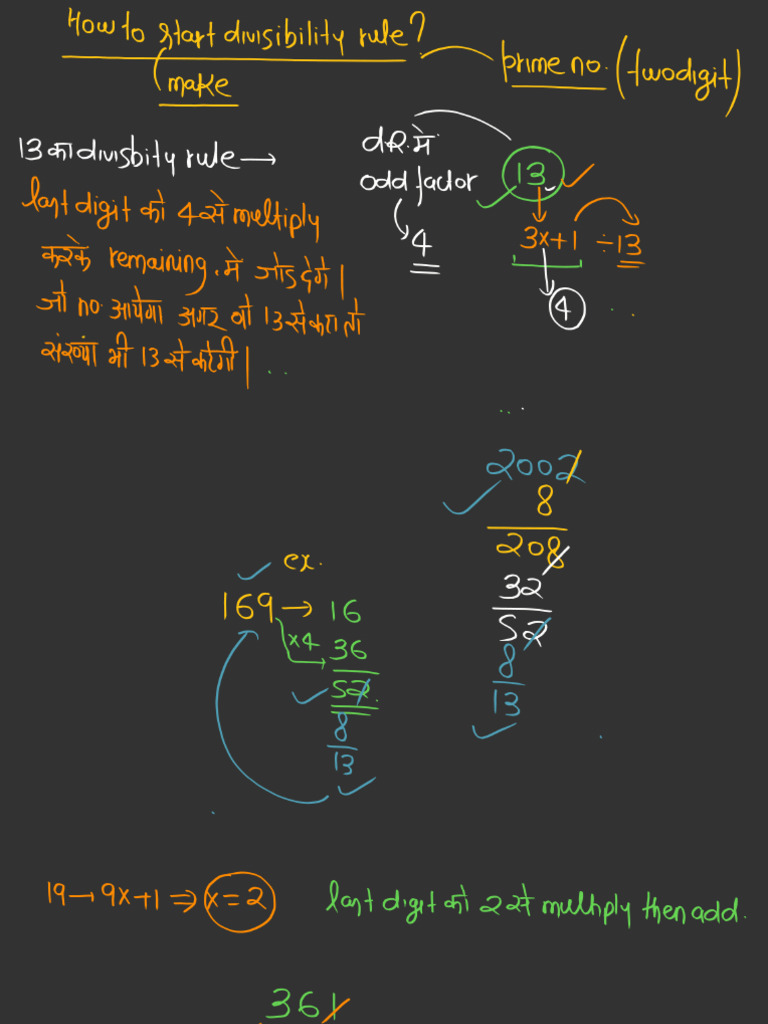 How to start divisibility rule?
make
prime no. (two digit)
13 का divisbity rule →
d.R. मे
odd factor
4
13
3x+1 ÷13
4
last digit को 4 से multiply
करके remaining. मे जोड देगे |
जो no. आयेगा अगर वो 13 से करा तो
संख्यां भी 13 से कटेगी |
2002
8
208
32
52
8
13
ex.
169 → 16
×4 36
52
8
13
19 → 9x+1 ⇒ x=2
last digit को 2 से multiply then add.
361